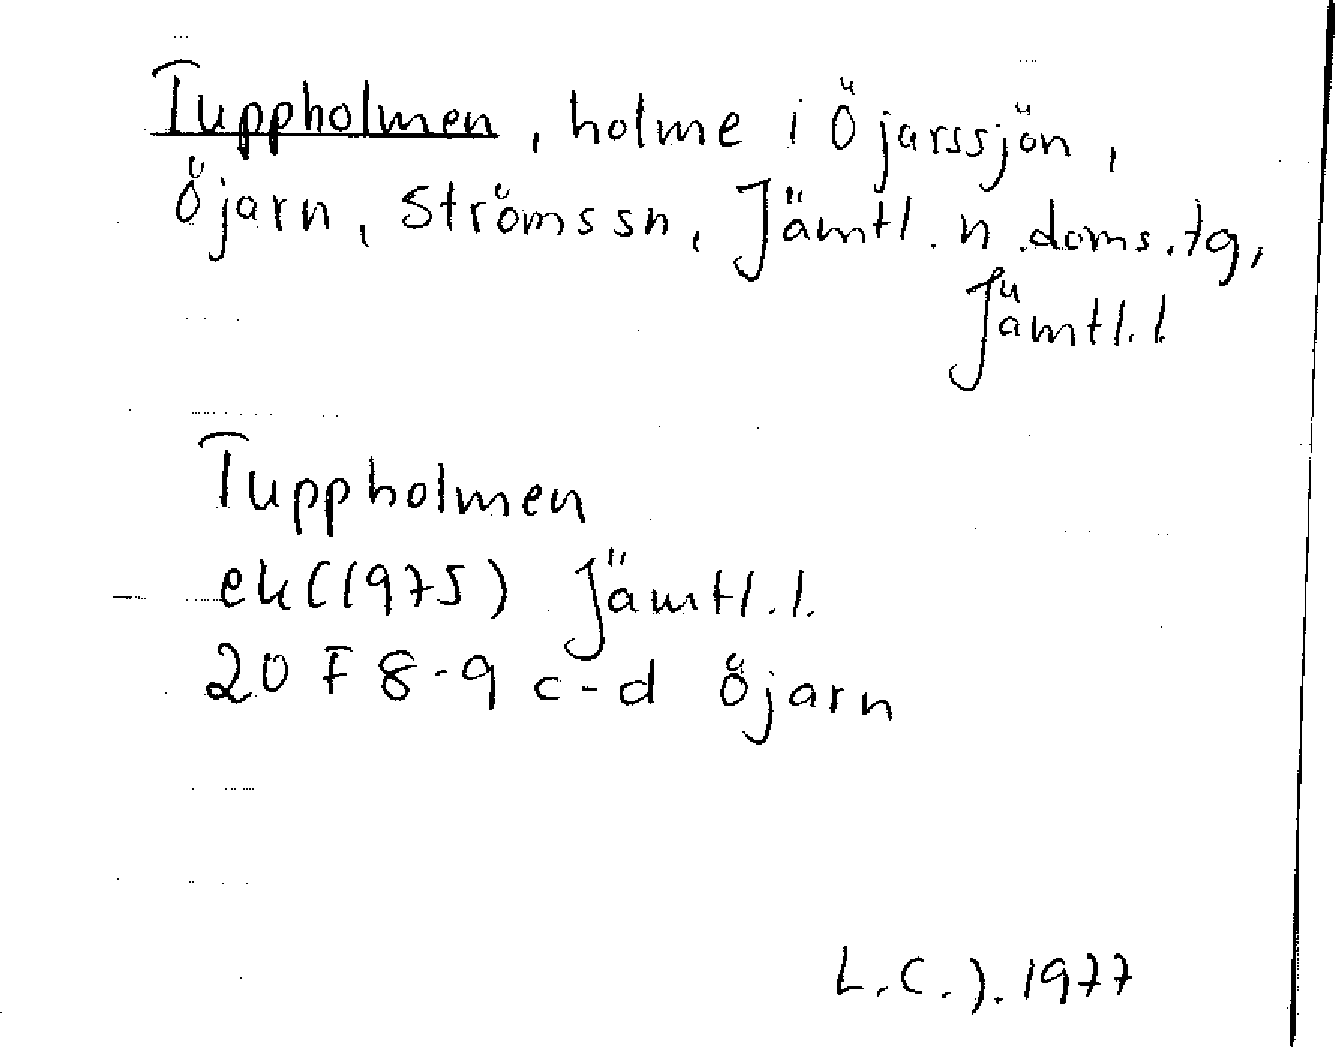 Tuppholmen, holme i Öjarssjön,
Öjarn, Ströms sn, Jämtl. n. doms. tg,
Jämtl. l.
Tuppholmen
ek (1975) Jämtl. l.
20 F 8-9 c-d Öjarn
L.C.J. 1977